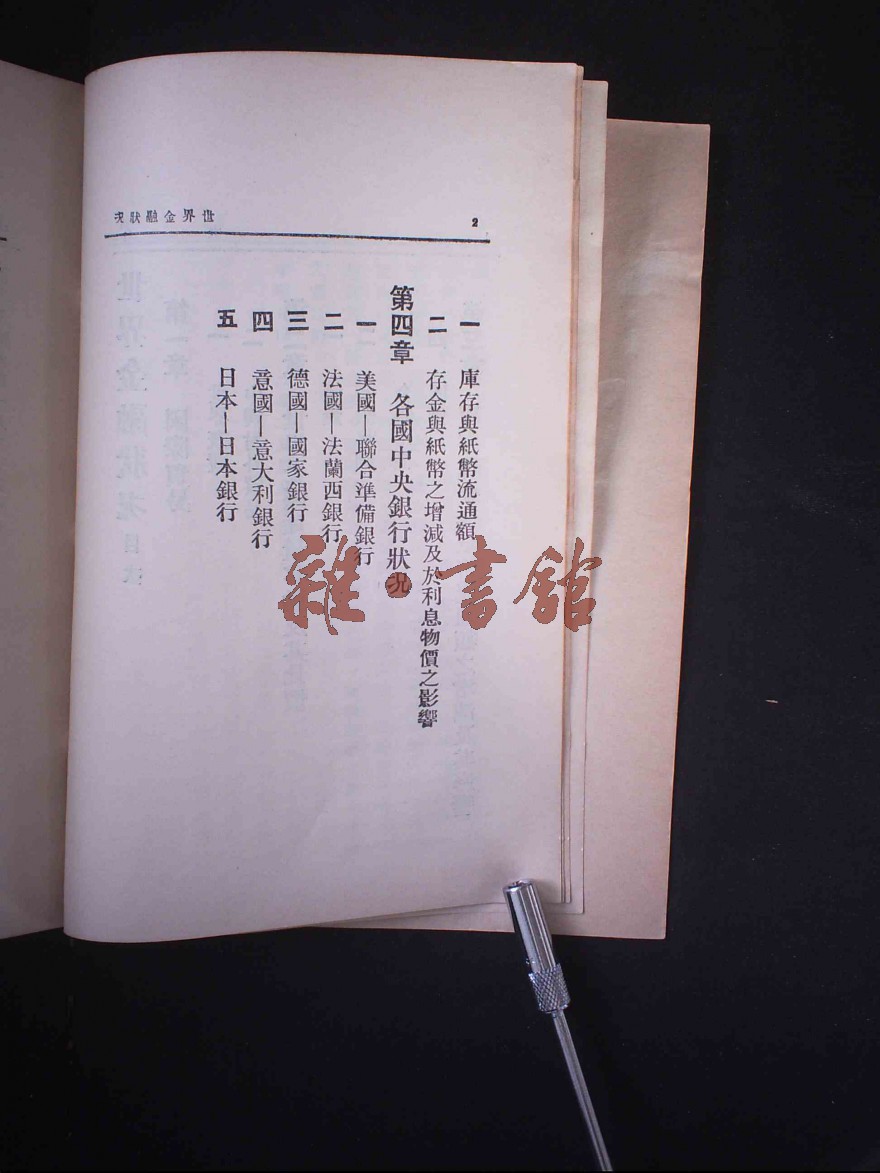 世界金融狀況
2
一 庫存與紙幣流通額
二 存金與紙幣之增減及於利息物價之影響
第四章 各國中央銀行狀況
一 美國—聯合準備銀行
二 法國—法蘭西銀行
三 德國—國家銀行
四 意國—意大利銀行
五 日本—日本銀行
雜·書館